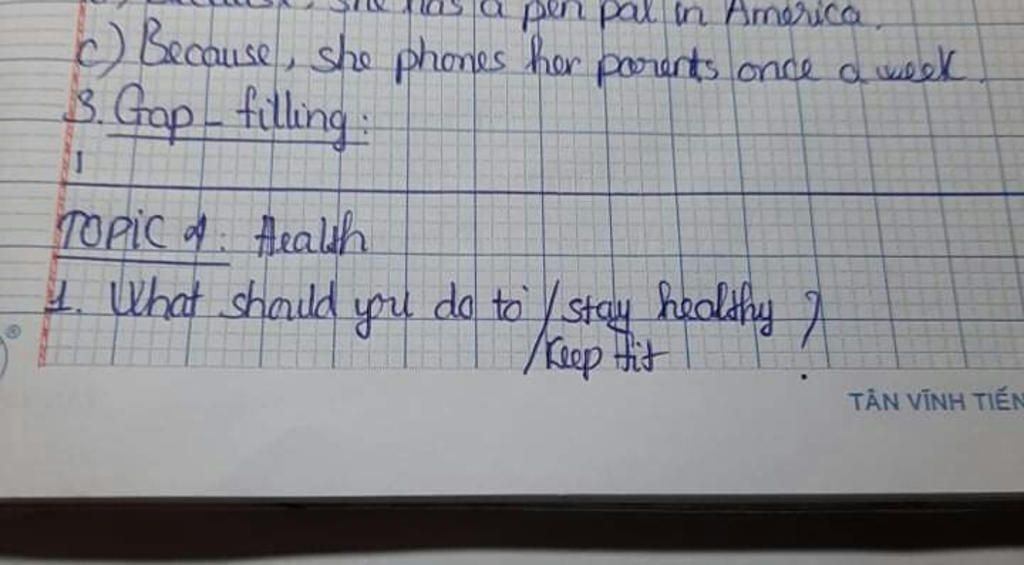 she has a pen pal in America.
c) Because, she phones her parents once a week.
3. Gap - filling:
1
TOPIC 1: Health
1. What should you do to / stay healthy ?
/ keep fit
®
TÂN VĨNH TIẾN